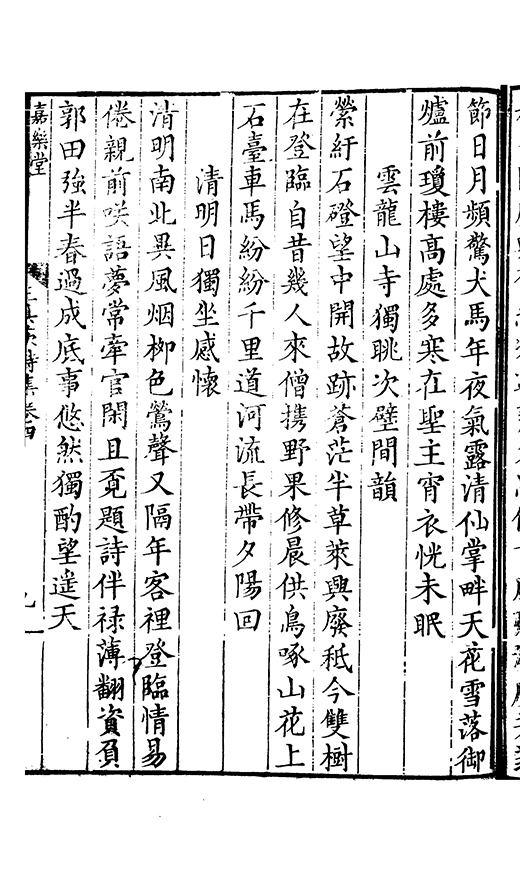 節日月頻驚犬馬年夜氣露清仙掌畔天花雪落御
爐前瓊樓髙處多寒在聖主宵衣恍未眠
雲龍山寺獨眺次壁間韻
縈紆石磴望中開故跡蒼茫半草萊興廢秪今雙樹
在登臨自昔幾人來僧携野果修晨供鳥啄山花上
石臺車馬紛紛千里道河流長帶夕陽回
清明日獨坐感懷
清明南北異風烟栁色鶯聲又隔年客裡登臨情易
倦親前咲語夢常牽官閑且覔題詩伴禄薄翻資負
郭田強半春過成底事悠然獨酌望遥天
嘉樂堂
詩集卷四
九